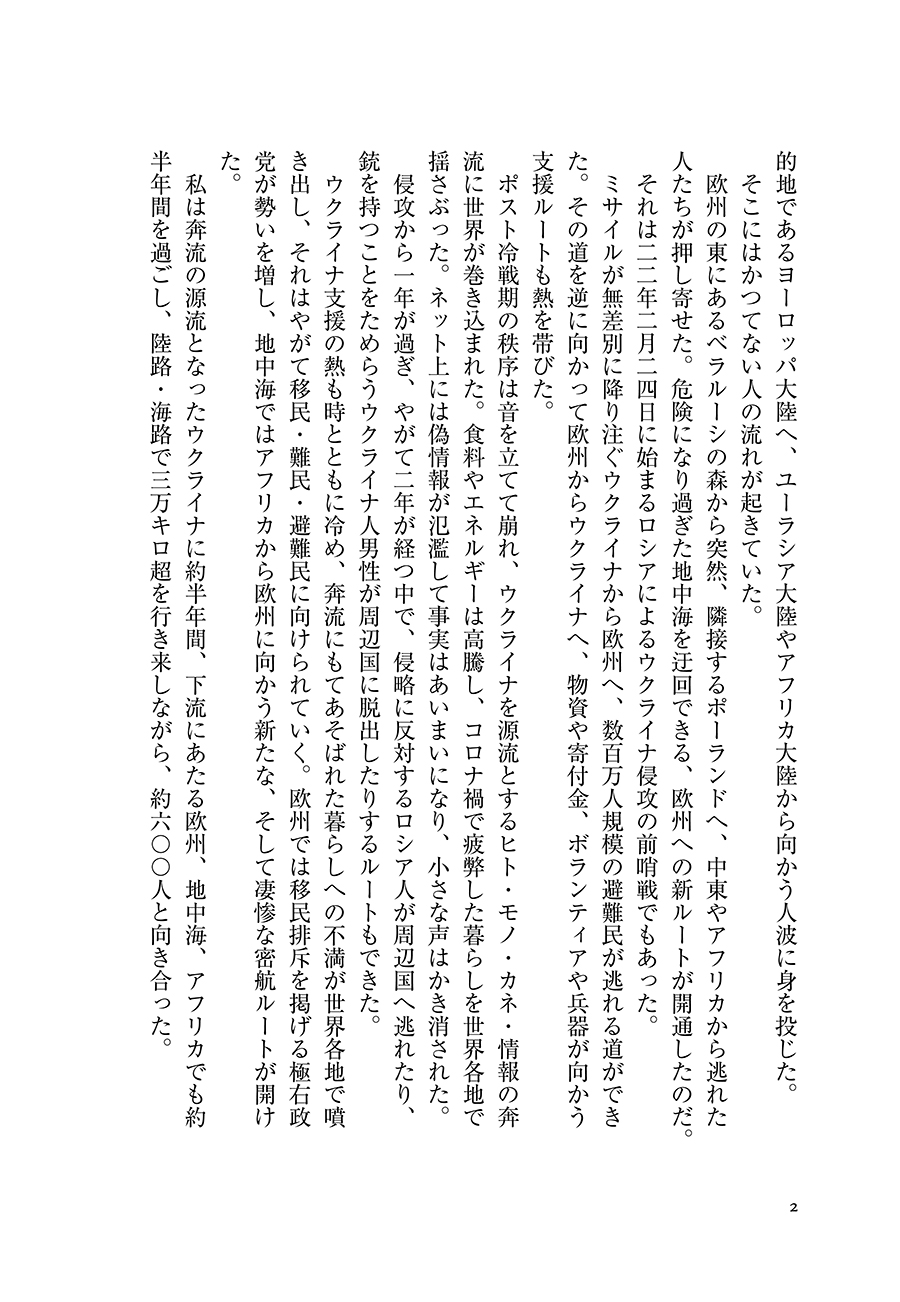 的地であるヨーロッパ大陸へ、ユーラシア大陸やアフリカ大陸から向かう人波に身を投じた。
そこにはかつてない人の流れが起きていた。
欧州の東にあるベラルーシの森から突然、隣接するポーランドへ、中東やアフリカから逃れた
人たちが押し寄せた。危険になり過ぎた地中海を迂回できる、欧州への新ルートが開通したのだ。
それは二二年二月二四日に始まるロシアによるウクライナ侵攻の前哨戦でもあった。
ミサイルが無差別に降り注ぐウクライナから欧州へ、数百万人規模の避難民が逃れる道ができ
た。その道を逆に向かって欧州からウクライナへ、物資や寄付金、ボランティアや兵器が向かう
支援ルートも熱を帯びた。
ポスト冷戦期の秩序は音を立てて崩れ、ウクライナを源流とするヒト・モノ・カネ・情報の奔
流に世界が巻き込まれた。食料やエネルギーは高騰し、コロナ禍で疲弊した暮らしを世界各地で
揺さぶった。ネット上には偽情報が氾濫して事実はあいまいになり、小さな声はかき消された。
侵攻から一年が過ぎ、やがて二年が経つ中で、侵略に反対するロシア人が周辺国へ逃れたり、
銃を持つことをためらうウクライナ人男性が周辺国に脱出したりするルートもできた。
ウクライナ支援の熱も時とともに冷め、奔流にもてあそばれた暮らしへの不満が世界各地で噴
き出し、それはやがて移民・難民・避難民に向けられていく。欧州では移民排斥を掲げる極右政
党が勢いを増し、地中海ではアフリカから欧州に向かう新たな、そして凄惨な密航ルートが開け
た。
私は奔流の源流となったウクライナに約半年間、下流にあたる欧州、地中海、アフリカでも約
半年間を過ごし、陸路・海路で三万キロ超を行き来しながら、約六〇〇人と向き合った。
2